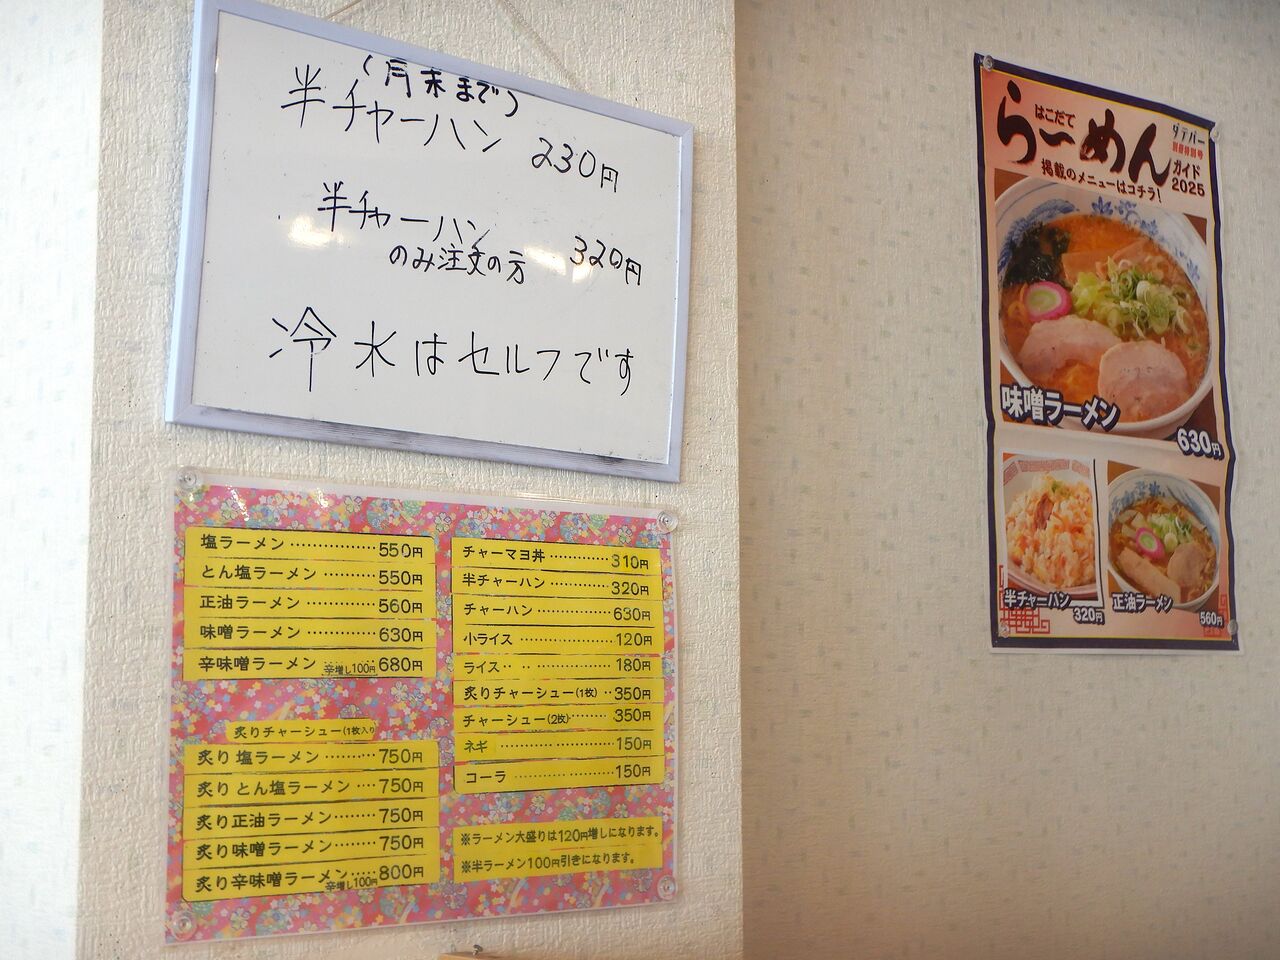 (月末まで)
半チャーハン 230円
半チャーハン
のみ注文の方 320円
冷水はセルフです
塩ラーメン……………550円
とん塩ラーメン…………550円
正油ラーメン……………560円
味噌ラーメン……………630円
辛味噌ラーメン 辛増し100円 680円
炙りチャーシュー(1枚入り)
炙り 塩ラーメン………750円
炙り とん塩ラーメン……750円
炙り正油ラーメン………750円
炙り味噌ラーメン………750円
炙り辛味噌ラーメン……800円
辛増し100円
チャーマヨ丼……………310円
半チャーハン……………320円
チャーハン………………630円
小ライス…………………120円
ライス……………………180円
炙りチャーシュー(1枚)…350円
チャーシュー(2枚)………350円
ネギ………………………150円
コーラ……………………150円
※ラーメン大盛りは120円増しになります。
※半ラーメン100円引きになります。
はこだて
らーめん
ダテパー
別冊特別号
ガイド
2025
掲載のメニューはコチラ!
味噌ラーメン
630円
半チャーハン
320円
正油ラーメン
560円